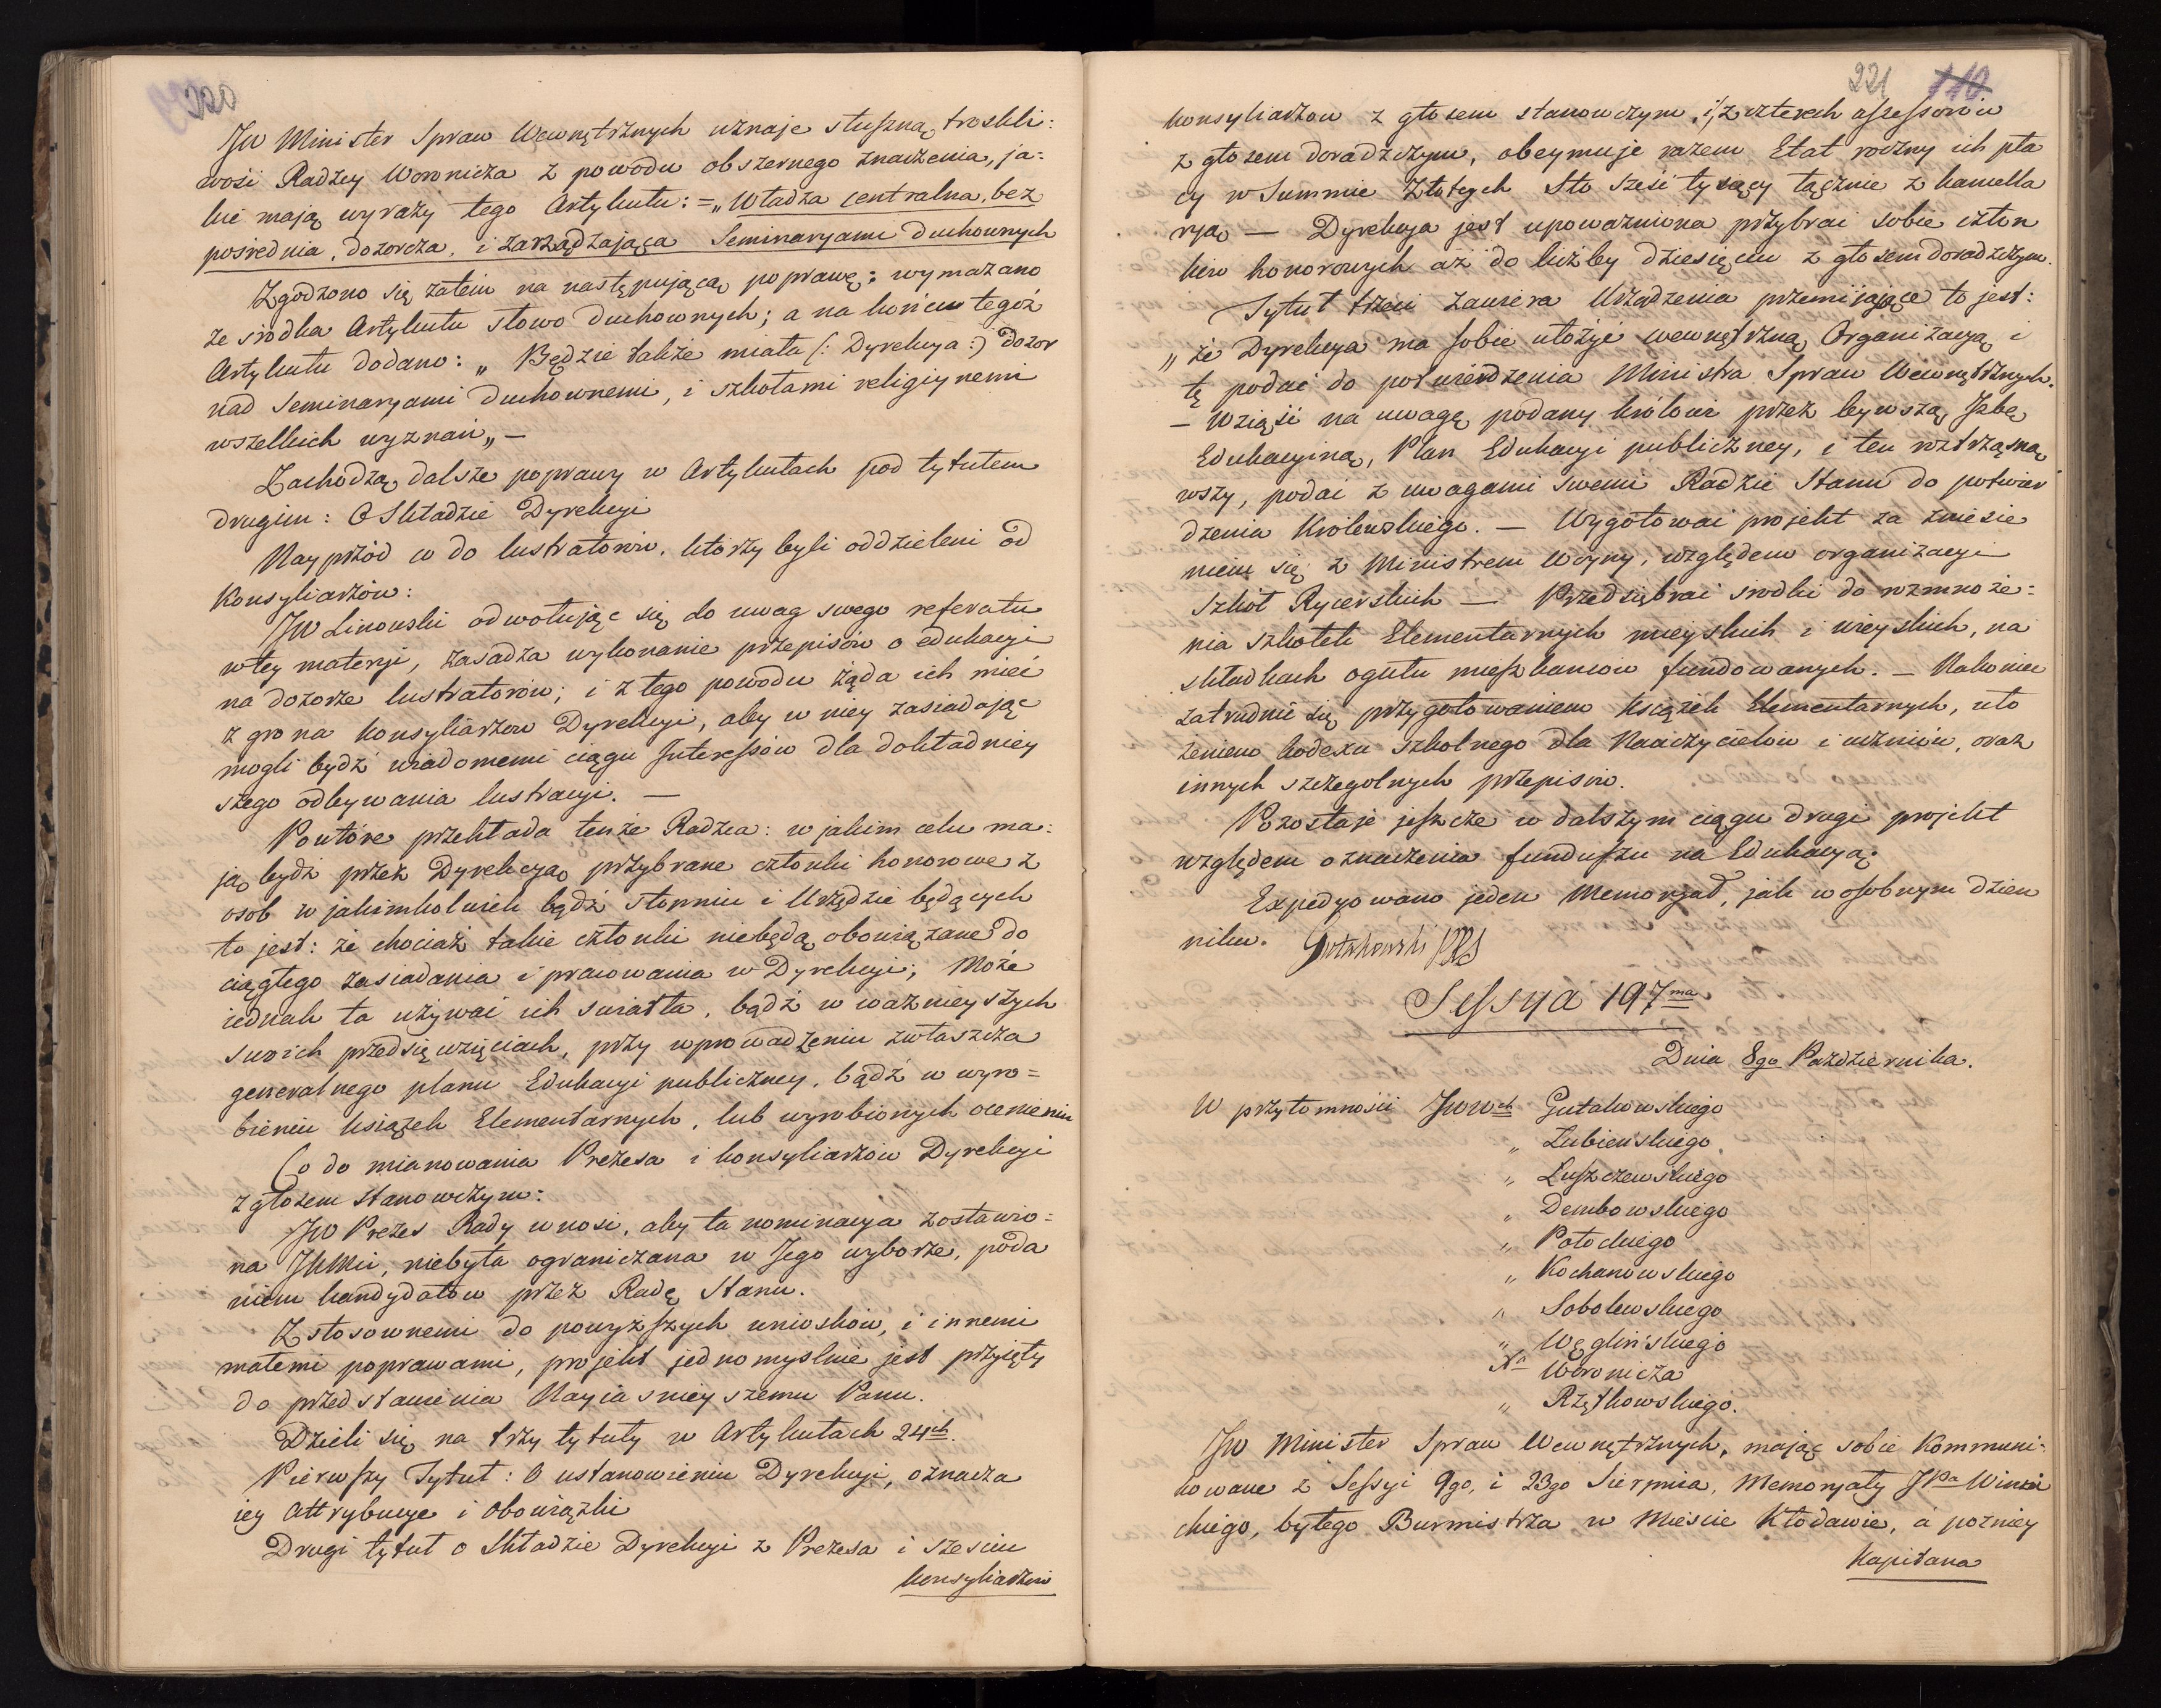 220
JW Minister Spraw Wewnętrznych uznaje słuszną troskli:
wość Radzcy Woronicza z powodu obszernego znaczenia, ja:
kie mają wyrazy tego Artykułu: = „Władza centralna, bez
pośrednia, dozorcza, i zarządzająca Seminaryami duchownych
Zgodzono się zatem na następującą poprawę: wymazano
ze srodka Artykułu słowo duchownych; a na końcu tegoż
Artykułu dodano: „Będzie także miała (: Dyrekcya :) dozor
nad Seminaryami duchownemi, i szkołami religiynemi
wszelkich wyznań„ —
Zachodzą dalsze poprawy w Artykułach pod tytułem
drugim: O Składzie Dyrekcyi
Nayprzód co do lustratorów, którzy byli oddzieleni od
Konsyliarzów:
JW Linowski odwołując się do uwag swego referatu
w tey materyi, zasadza wykonanie przepisów o edukacyi
na dozorze lustratorów; i z tego powodu żąda ich mieć
z grona Konsyliarzow Dyrekcyi, aby w niey zasiadając
mogli bydź wiadomemi ciągu Interessów dla dokładniey
szego odbywania lustracyi. —
Powtóre przekłada tenże Radzca: w jakim celu ma:
ją bydź przez Dyrekcyą przybrane członki honorowe z
osob w jakimkolwiek bądź stopniu i Urzędzie będących
to jest: że chociaż takie członki niebędą obowiązane do
ciągłego zasiadania i pracowania w Dyrekcyi; Może
iednak ta używać ich swiatła, bądź w ważnieyszych
swoich przedsięwzięciach, przy wprowadzeniu zwłaszcza
generalnego planu Edukacyi publiczney, bądź w wyro=
bieniu książek Elementarnych, lub wyrobionych ocenieniu
Co do mianowania Prezesa i konsyliarzów Dyrekcyi
z głosem stanowczym:
JW Prezes Rady wnosi, aby ta nominacya zostawio=
na JKMci, niebyła ograniczana w Jego wyborze, poda
niem kandydatow przez Radę Stanu.
Z stosownemi do powyższych wniosków, i innemi
małemi poprawami, projekt jednomyslnie jest przyięty
do przedstawienia Nayiasnieyszemu Panu.
Dzieli się na trzy tytuły w Artykułach 24ch.
Pierwszy Tytuł: O ustanowieniu Dyrekcyi, oznacza
iey Attrybucye i Obowiązki
Drugi tytuł o Składzie Dyrekcyi z Prezesa i szesciu
konsyliarzów
221 110
konsyliarzow z głosem stanowczym, i z czterech assessorów
z głosem doradzczym, obeymuje razem Etat roczny ich pła
cy w Summie Złotych Sto sześć tysięcy łącznie z kancella
ryą — Dyrekcya jest upoważniona przybrać sobie człon
ków honorowych aż do liczby dziesięciu z głosem doradzczym.
Tytuł trzeci zawiera Urządzenia przemijające to jest:
„że Dyrekcya ma sobie ułożyć wewnętrzną Organizacyą i
tę podać do potwierdzenia Ministra Spraw Wewnętrznych.
— Wziąść na uwagę podany królowi przez bywszą Izbę
Edukacyiną, Plan Edukacyi publiczney, i ten roztrząsną
wszy, podać z uwagami swemi Radzie Stanu do potwier
dzenia Krolewskiego. — Wygotować projekt za zniesie
niem się z Ministrem Woyny, względem organizacyi
Szkół Rycerskich — Przedsiębrać srodki do rozmnoże:
nia szkołek Elementarnych mieyskich i wieyskich, na
składkach ogułu mieszkancow fundowanych. — Nakoniec
zatrudnić się przygotowaniem książek Elementarnych, uło
żeniem kodexu szkolnego dla Nauczycielow i uczniów, oraz
innych szczegolnych przepisow.
Pozostaje jeszcze w dalszym ciągu drugi projekt
względem oznaczenia funduszu na Edukacyą.
Expedyowano jeden Memoryał, jak w osobnym dzien
niku. Gutakowski PRS
Sessya 197ma
Dnia 8go Pazdziernika.
W przytomności JWWch Gutakowskiego
„ Łubieńskiego
„ Łuszczewskiego
„ Dembowskiego
„ Potockiego
„ Kochanowskiego
„ Sobolewskiego
„ Węglińskiego
Xa Woronicza
„ Rzętkowskiego.
JW Minister Spraw Wewnętrznych, mając sobie Kommuni:
kowane z Sessyi 9go, i 23go Sierpnia, Memoryały JPa Winni
ckiego, byłego Burmistrza w Mieście Kłodawie, á pozniey
Kapitana